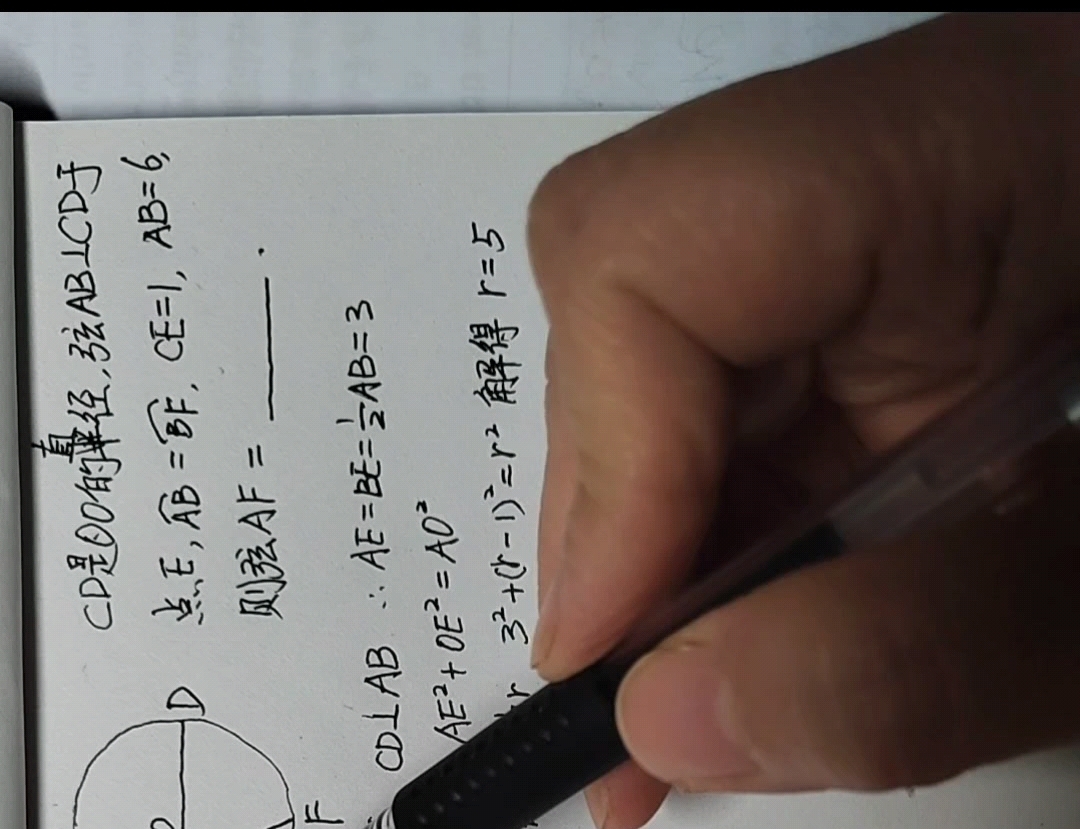 CD是⊙O的直径,弦AB⊥CD于
点E,AB=BF,CE=1,AB=6,
则弦AF=______.
D
F
CD⊥AB ∴AE=BE=1/2AB=3
AE²+OE²=AO²
r 3²+(r-1)²=r² 解得 r=5